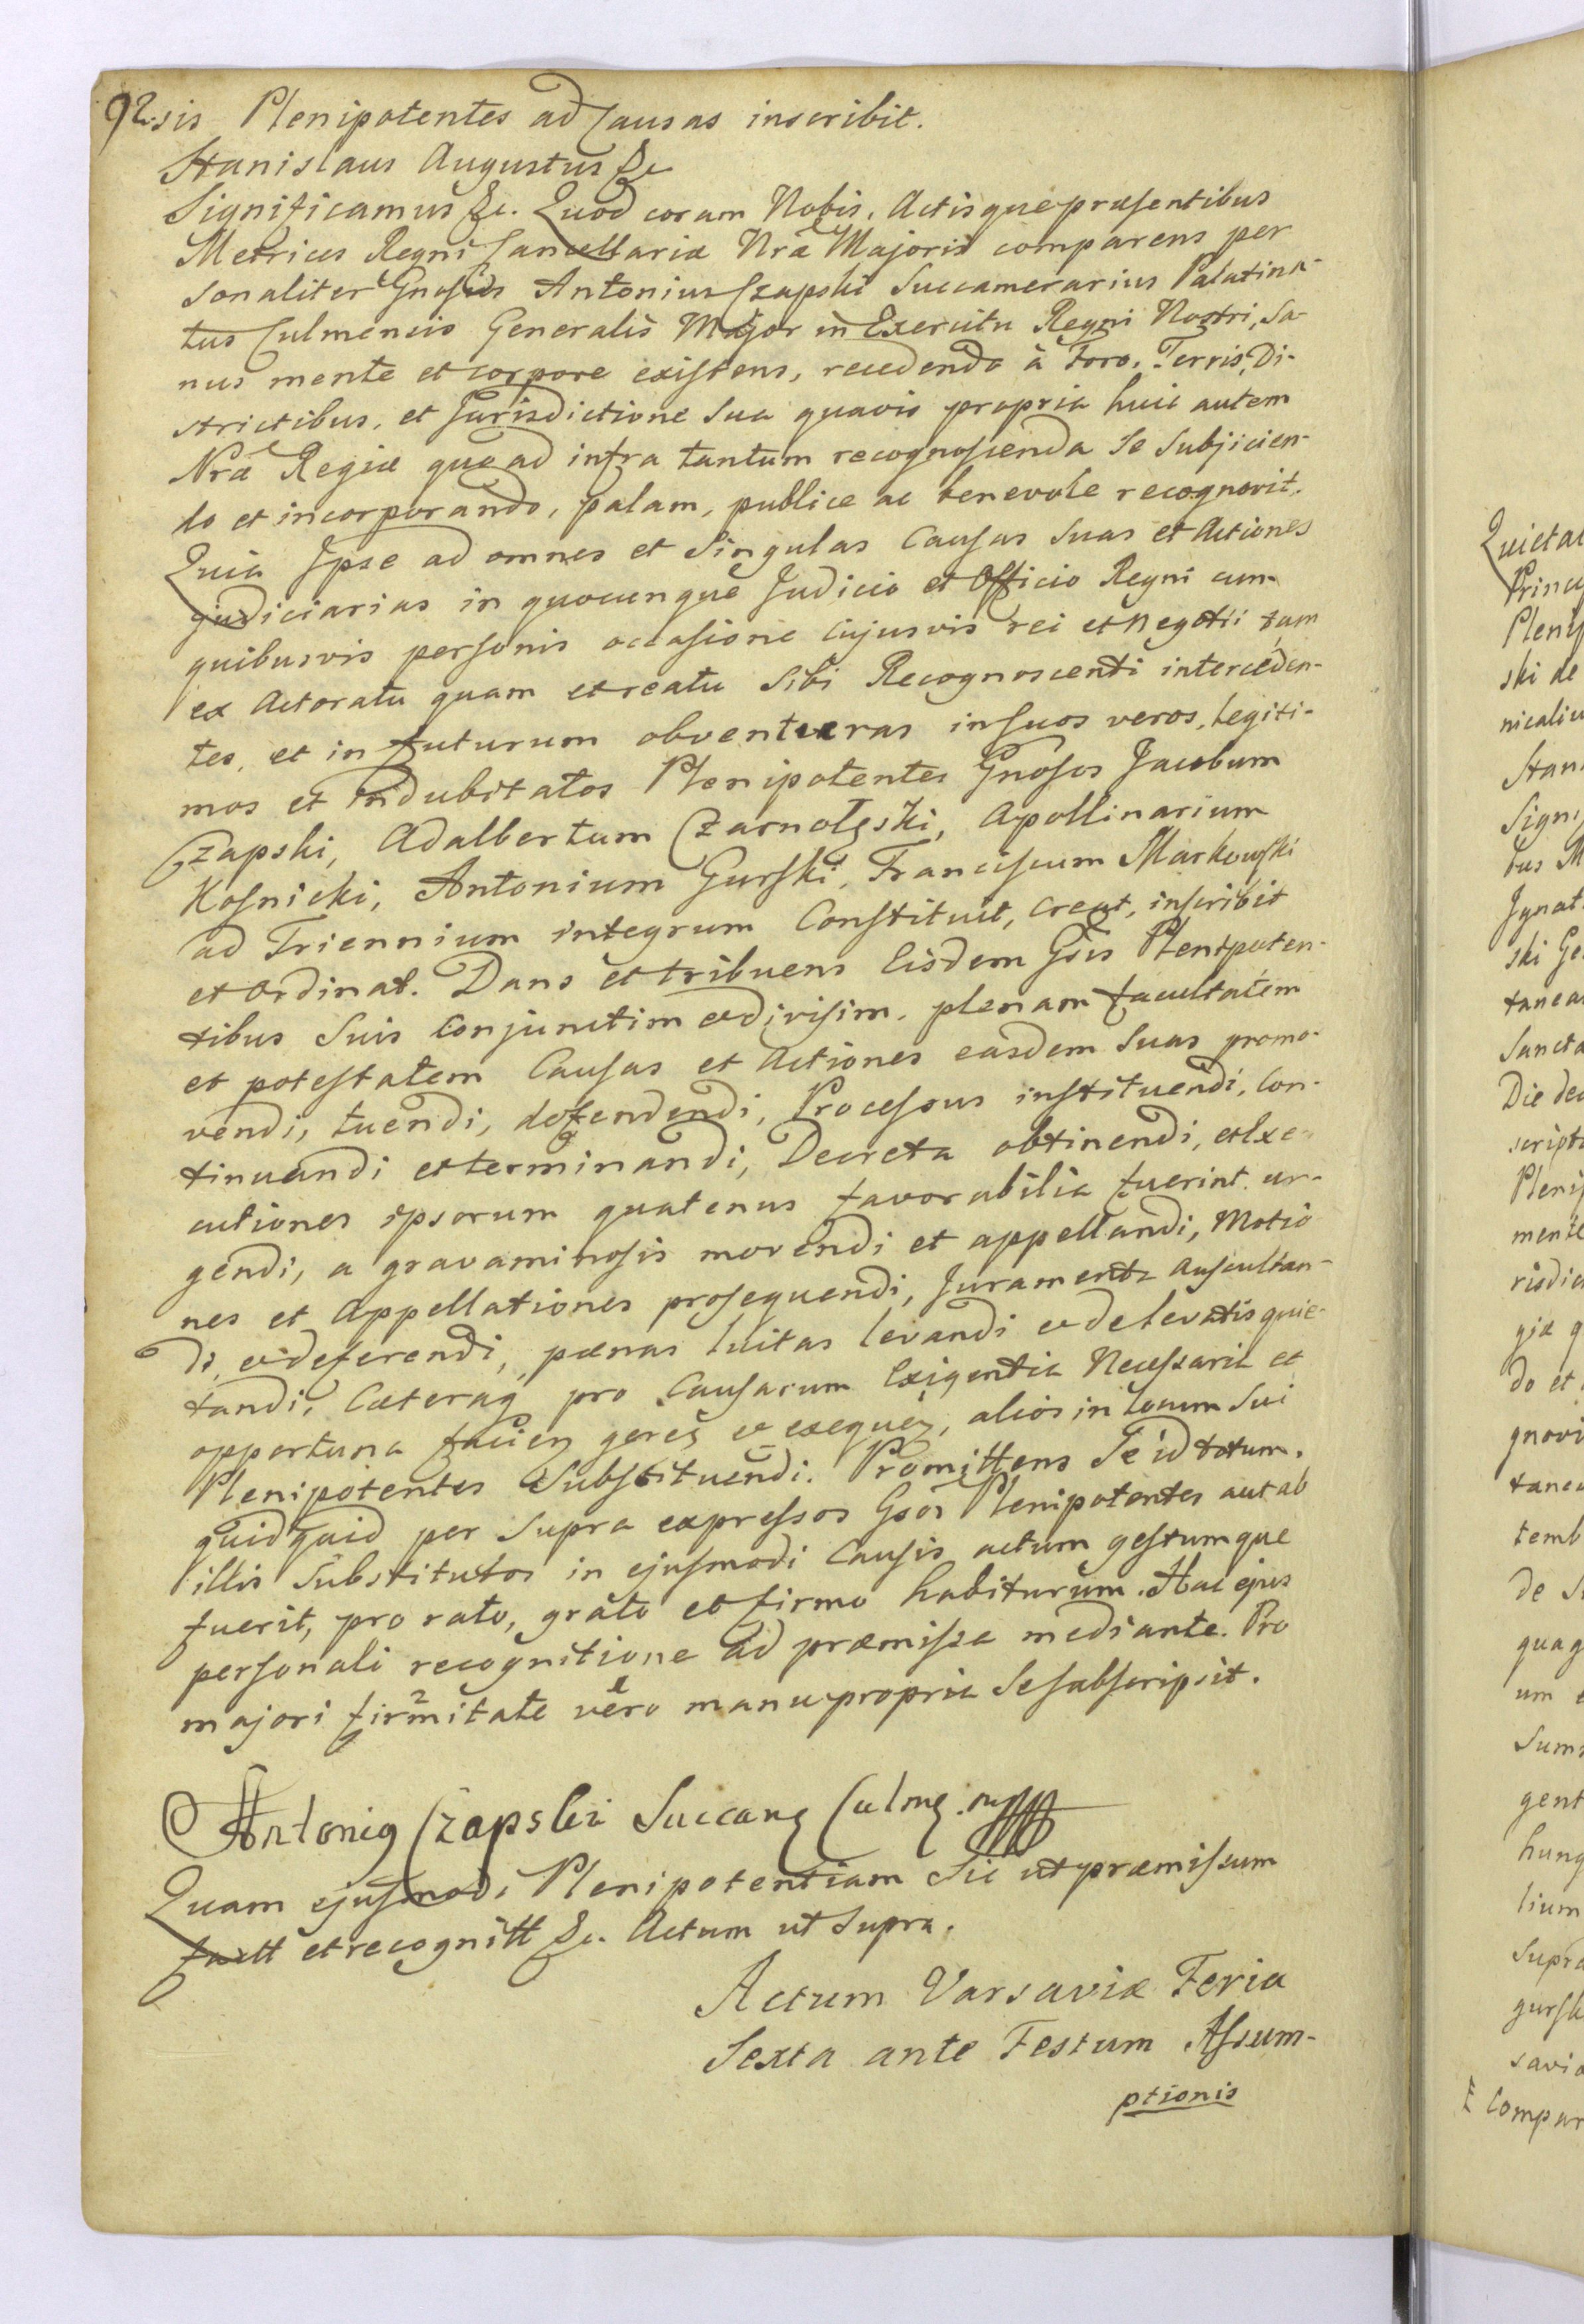 92. sis Plenipotentes ad Causas inscribit.
Stanislaus Augustus &c
Significamus &c. Quod coram Nobis, Actisque præsentibus
Metrices Regni Cancellariæ Nræ Majoris comparens per
sonaliter Gnosus Antonius Czapski Succamerarius Palatina-
tus Culmensis Generalis Major in Exercitu Regni Nostri, Sa-
nus mente et corpore existens, recedendo à Foro, Terris, Di-
strictibus, et Jurisdictione Sua quavis propria huic autem
Nræ Regiæ quo ad infra tantum recognoscenda Se Subjicien-
do et incorporando, palam, publice ac benevole recognovit.
Quia Ipse ad omnes et Singulas Causas Suas et Actiones
judiciarias in quocunque Judicio et Officio Regni cum
quibusvis personis occasione cujusvis rei et negotii tam
ex Actoratu quam et reatu Sibi Recognoscenti interceden-
tes, et in futurum obventuras in Suos veros, legiti-
mos et indubitatos Plenipotentes Gnosos Jacobum
Czapski, Adalbertum Czarnolęski, Apollinarium
Kosnicki, Antonium Gurski, Franciscum Markowski
ad Triennium integrum Constituit, creat, inscribit
et ordinat. Dans et tribuens Eisdem Gsis Plenipoten-
tibus Suis Conjunctim et divisim, plenam facultatem
et potestatem Causas et Actiones easdem Suas promo-
vendi, tuendi, defendendi, Processus instituendi, Con-
tinuandi et terminandi, Decreta obtinendi, et Exe-
cutiones ipsorum quatenus favorabilia fuerint ur-
gendi, a gravaminosis movendi et appellandi, Motio
nes et Appellationes prosequendi, Juramenta auscultan-
di, et deferendi, pænas luitas levandi et de levatis quie-
tandi, Cæteraq pro Causarum Exigentia Necessaria et
opportuna facien geren et exequen, alios in locum Sui
Plenipotentes Substituendi. Promittens Se id totum.
quidquid per Supra expressos Gsos Plenipotentes aut ab
illis Substitutos in ejusmodi Causis actum gestumque
fuerit, pro rato, grato et firmo habiturum. Hac ejus
personali recognitione ad præmissa mediante. Pro
majori firmitate vero manu propria Se subscripsit.
Antonius Czapski Succam Culmen mp
Quam ejusmodi Plenipotentiam Sic ut præmissum
factt et recognitt &c. Actum ut Supra.
Actum Varsaviæ Feria
Sexta ante Festum Assum-
ptionis
Quietat
Princ
Plenip
ski de
nicaliu
Stan
Signi
bus M
Ignat
ski Ge
tanea
Sancta
Die de
scripta
Plenip
mente
risdic
giæ q
do et
gnovi
tanea
temb
de S
quag
um e
Sum
gent
hung
lium
Supra
gursk
savia
Compar